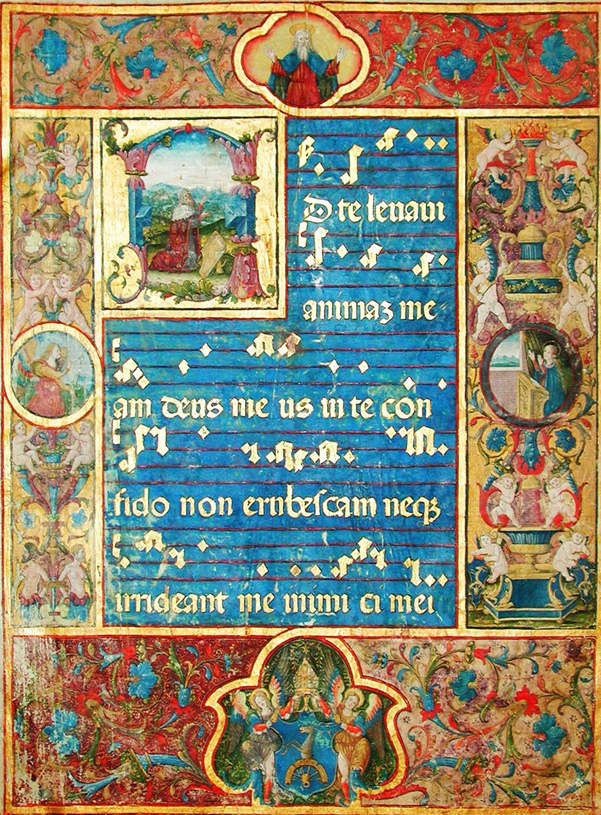 D te leuaui
animaʒ me
am deus me us in te con
fido non erubescam neqʒ
irrideant me inimi ci mei